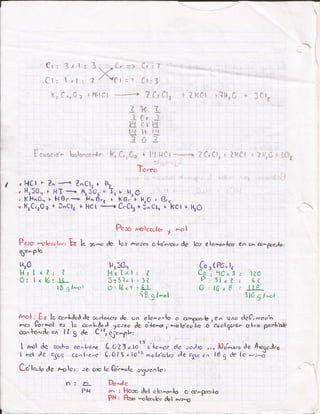 Cr: 3 x 1 = 3 Cr => Cr = 2
Cl: 1 x 1: 2 Cl: 3
K₂Cr₂O₇ + HCl → 2CrCl₃ + 2KCl + 7H₂O + 3Cl₂
2 K 2
2 Cr 2
14 Cl 14
14 H 14
7 O 7
Ecuación balanceada: K₂Cr₂O₇ + 14HCl → 2CrCl₃ + 2KCl + 7H₂O + 3Cl₂
Tarea
HCl + Zn → ZnCl₂ + H₂
H₂SO₄ + HI → H₂SO₃ + I₂ + H₂O
KMnO₄ + HBr → MnBr₂ + KBr + H₂O + Br₂
K₂Cr₂O₇ + SnCl₂ + HCl → CrCl₃ + SnCl₄ + KCl + H₂O
Peso molecular y mol
Peso molecular: Es la suma de las masas atómicas de los elementos en un compuesto:
ejemplo
H₂O H₂SO₄ Ca₃(PO₄)₂
H: 1 x 2: 2 H: 2 x 1: 2 Ca: 40 x 3 = 120
O: 1 x 16: 16 S: 32 x 1: 32 P: 31 x 2: 62
18 g/mol O: 16 x 4 = 64 O: 16 x 8 =
98 g/mol 310 g/mol
mol: Es la cantidad de sustancia de un elemento o compuesto, en una definición
mas formal es la cantidad veces de átomo, molécula o cualquier otra partícula
contenida en 12 g de C¹², ejemplo:
1 mol de sodio contiene 6.023x10²³ átomos de sodio ... Número de Avogadro
1 mol de agua contiene 6.023x10²³ moléculas de agua en 18 g de la misma
Cálculo de moles: se usa la fórmula siguiente:
n = m/PM Donde
m: Masa del elemento o compuesto
PM: Peso molecular del mismo